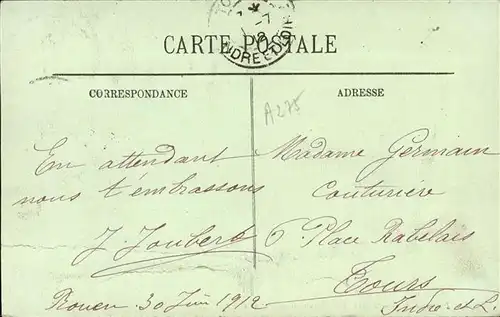 CARTE POSTALE
INDRE ET LOIRE
CORRESPONDANCE
ADRESSE
A275
En attendant
nous t'embrassons
J. Joubert
Rouen 30 Juin 1912
Madame Germain
Couturière
6 Place Rabelais
Tours
Indre-et-L.